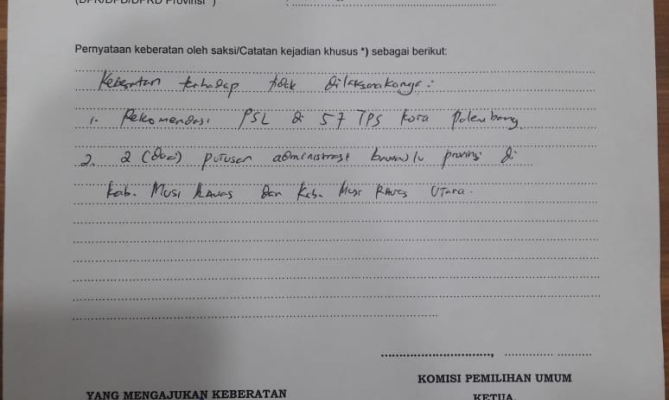 (DPR/DPD/DPRD Provinsi *) :
Pernyataan keberatan oleh saksi/Catatan kejadian khusus *) sebagai berikut:
Keberatan terhadap tidak dilaksanakannya :
1. Rekomendasi PSL di 57 TPS Kota Palembang
2. 2 (dua) putusan administrasi bawaslu provinsi di
kab. Musi Rawas dan Kab. Musi Rawas Utara.
KOMISI PEMILIHAN UMUM
YANG MENGAJUKAN KEBERATAN
KETUA,